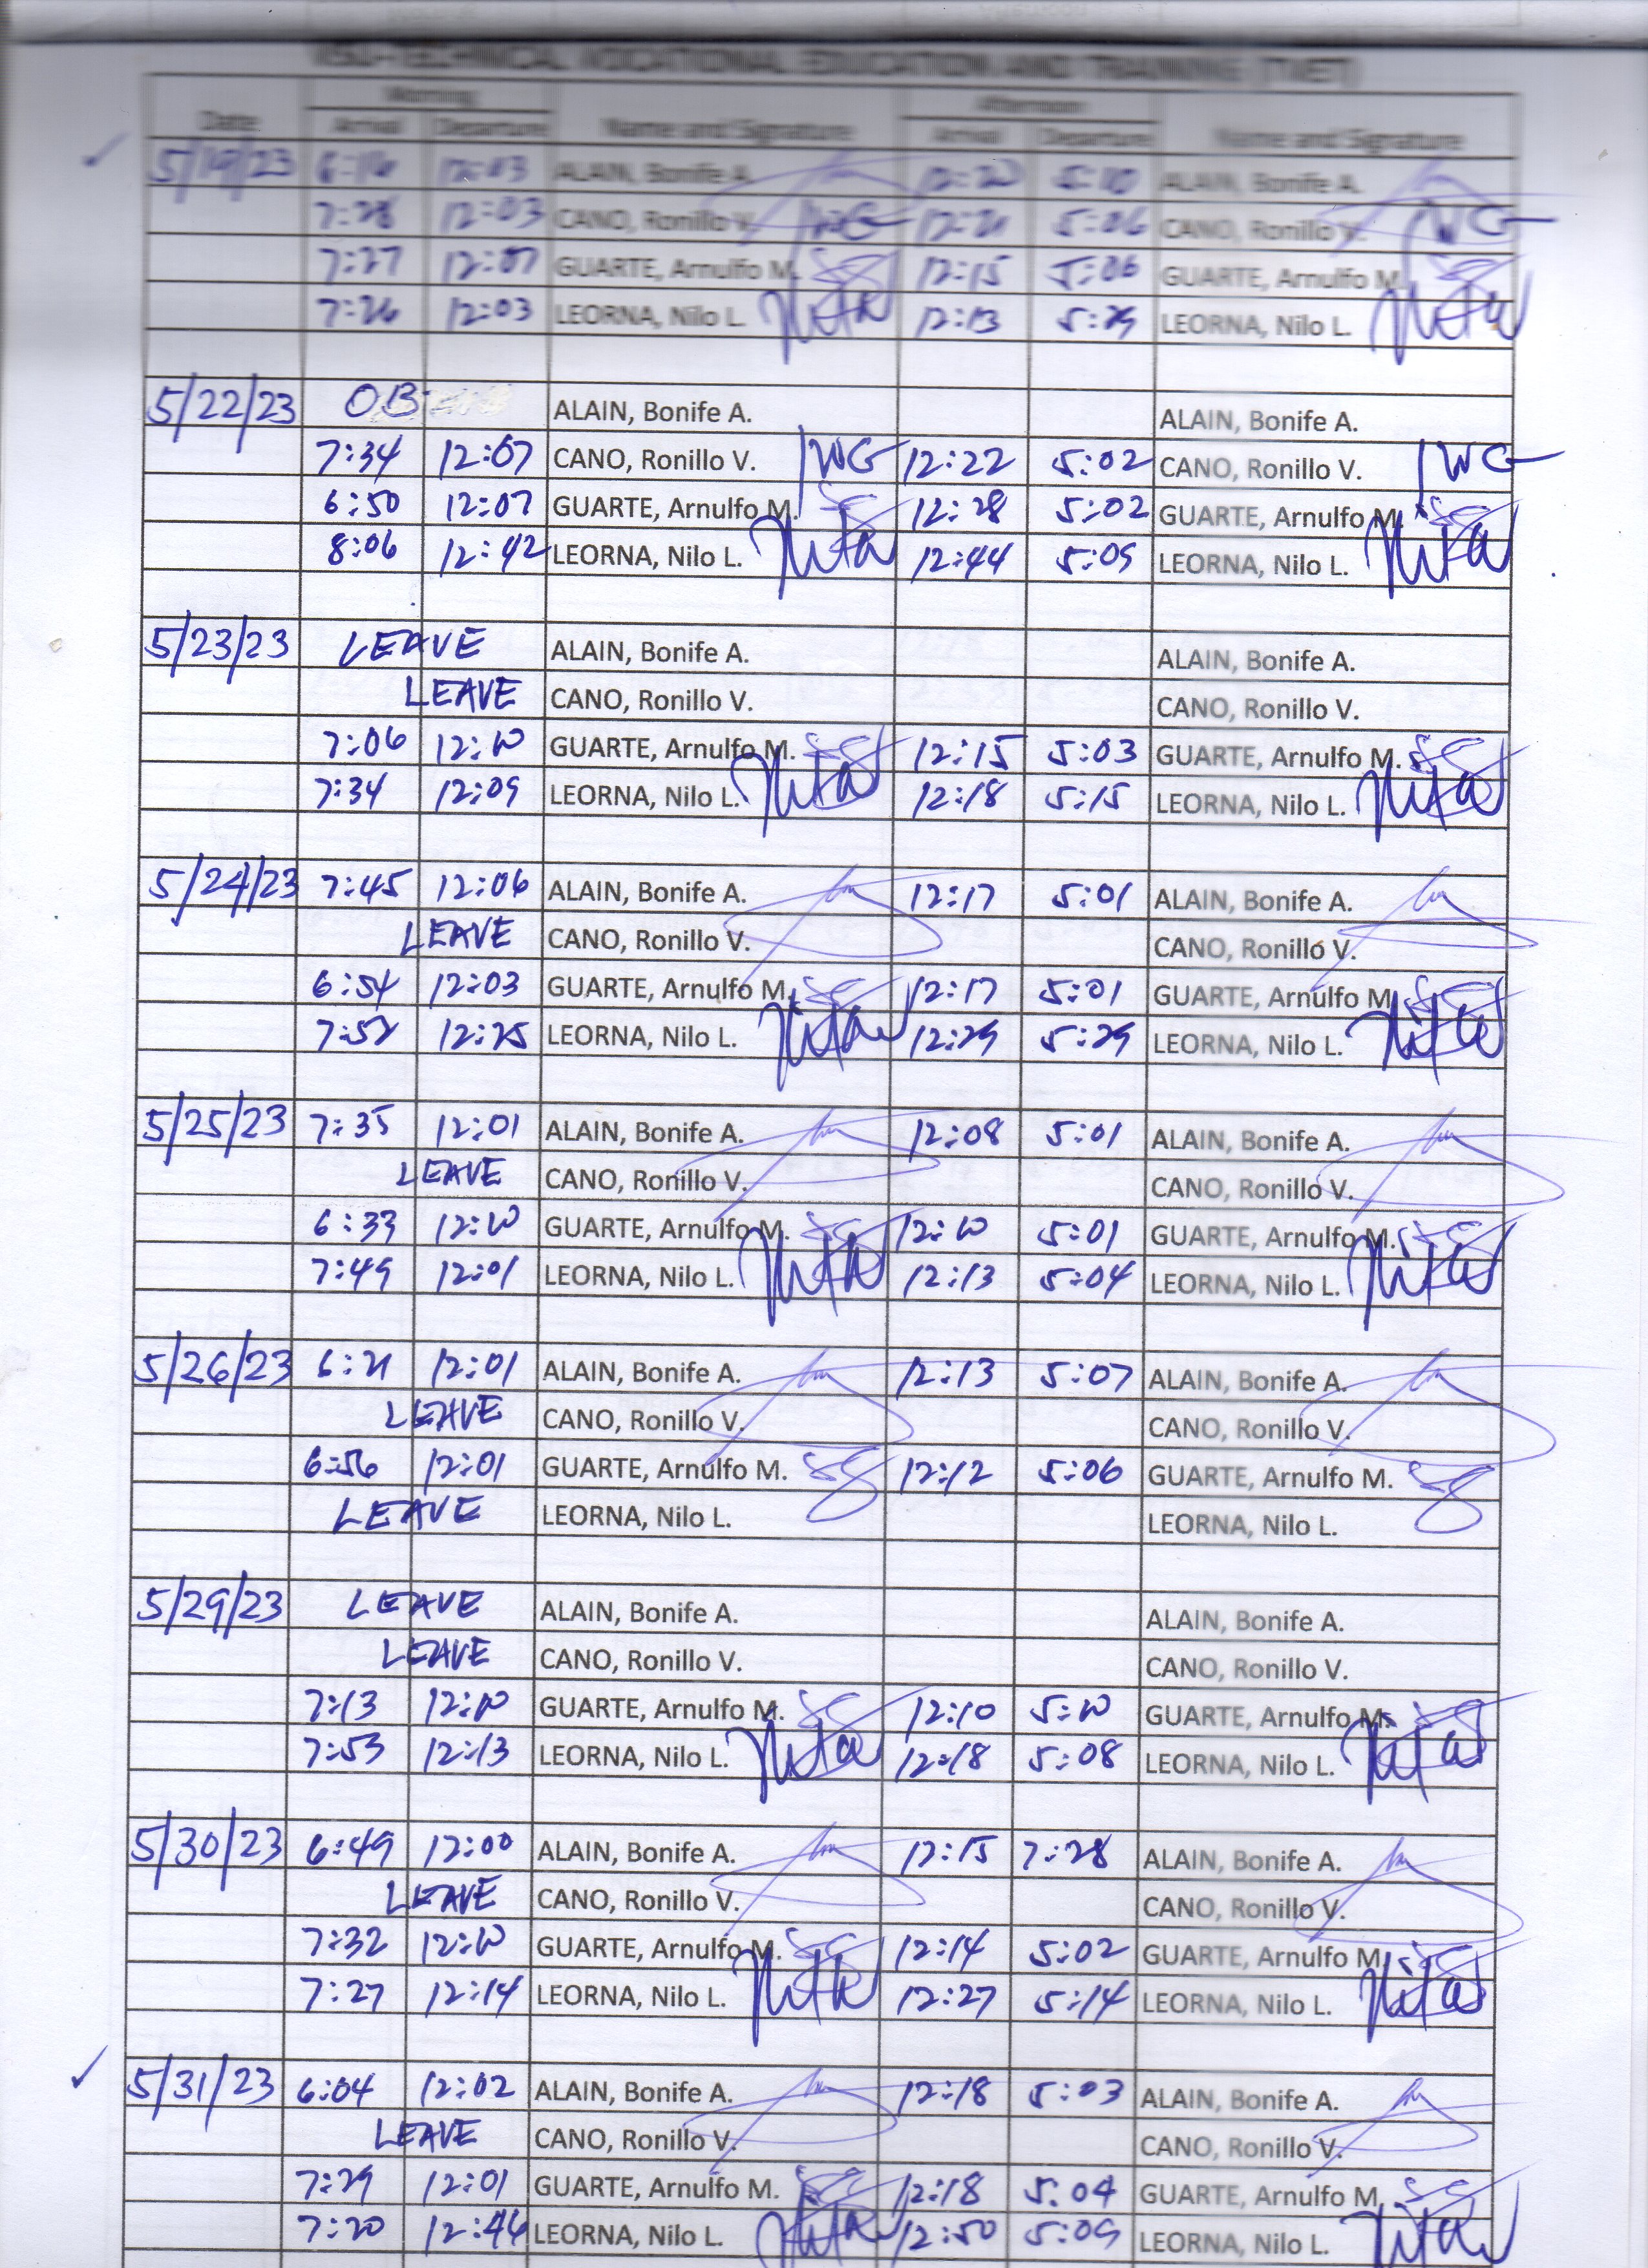 TECHNICAL VOCATIONAL EDUCATION AND TRAINING (TVET)
Morning Afternoon
Date Arrival Departure Name and Signature Arrival Departure Name and Signature
5/19/23 12:03 ALAIN, Bonife A. 12:20 5:10 ALAIN, Bonife A.
7:28 12:03 CANO, Ronillo V. 12:21 5:06 CANO, Ronillo V.
7:27 12:07 GUARTE, Arnulfo M. 12:15 5:06 GUARTE, Arnulfo M.
7:26 12:03 LEORNA, Nilo L. 12:13 5:29 LEORNA, Nilo L.
5/22/23 OB ALAIN, Bonife A. ALAIN, Bonife A.
7:34 12:07 CANO, Ronillo V. 12:22 5:02 CANO, Ronillo V.
6:50 12:07 GUARTE, Arnulfo M. 12:28 5:02 GUARTE, Arnulfo M.
8:06 12:42 LEORNA, Nilo L. 12:44 5:09 LEORNA, Nilo L.
5/23/23 LEAVE ALAIN, Bonife A. ALAIN, Bonife A.
LEAVE CANO, Ronillo V. CANO, Ronillo V.
7:06 12:10 GUARTE, Arnulfo M. 12:15 5:03 GUARTE, Arnulfo M.
7:34 12:09 LEORNA, Nilo L. 12:18 5:15 LEORNA, Nilo L.
5/24/23 7:45 12:06 ALAIN, Bonife A. 12:17 5:01 ALAIN, Bonife A.
LEAVE CANO, Ronillo V. CANO, Ronillo V.
6:54 12:03 GUARTE, Arnulfo M. 12:17 5:01 GUARTE, Arnulfo M.
7:52 12:25 LEORNA, Nilo L. 12:29 5:29 LEORNA, Nilo L.
5/25/23 7:35 12:01 ALAIN, Bonife A. 12:08 5:01 ALAIN, Bonife A.
LEAVE CANO, Ronillo V. CANO, Ronillo V.
6:33 12:10 GUARTE, Arnulfo M. 12:10 5:01 GUARTE, Arnulfo M.
7:49 12:01 LEORNA, Nilo L. 12:13 5:04 LEORNA, Nilo L.
5/26/23 6:21 12:01 ALAIN, Bonife A. 12:13 5:07 ALAIN, Bonife A.
LEAVE CANO, Ronillo V. CANO, Ronillo V.
6:56 12:01 GUARTE, Arnulfo M. 12:12 5:06 GUARTE, Arnulfo M.
LEAVE LEORNA, Nilo L. LEORNA, Nilo L.
5/29/23 LEAVE ALAIN, Bonife A. ALAIN, Bonife A.
LEAVE CANO, Ronillo V. CANO, Ronillo V.
7:13 12:10 GUARTE, Arnulfo M. 12:10 5:10 GUARTE, Arnulfo M.
7:53 12:13 LEORNA, Nilo L. 12:18 5:08 LEORNA, Nilo L.
5/30/23 6:49 12:00 ALAIN, Bonife A. 12:15 7:28 ALAIN, Bonife A.
LEAVE CANO, Ronillo V. CANO, Ronillo V.
7:32 12:10 GUARTE, Arnulfo M. 12:14 5:02 GUARTE, Arnulfo M.
7:27 12:14 LEORNA, Nilo L. 12:27 5:14 LEORNA, Nilo L.
5/31/23 6:04 12:02 ALAIN, Bonife A. 12:18 5:03 ALAIN, Bonife A.
LEAVE CANO, Ronillo V. CANO, Ronillo V.
7:29 12:01 GUARTE, Arnulfo M. 12:18 5:04 GUARTE, Arnulfo M.
7:20 12:46 LEORNA, Nilo L. 12:50 5:09 LEORNA, Nilo L.